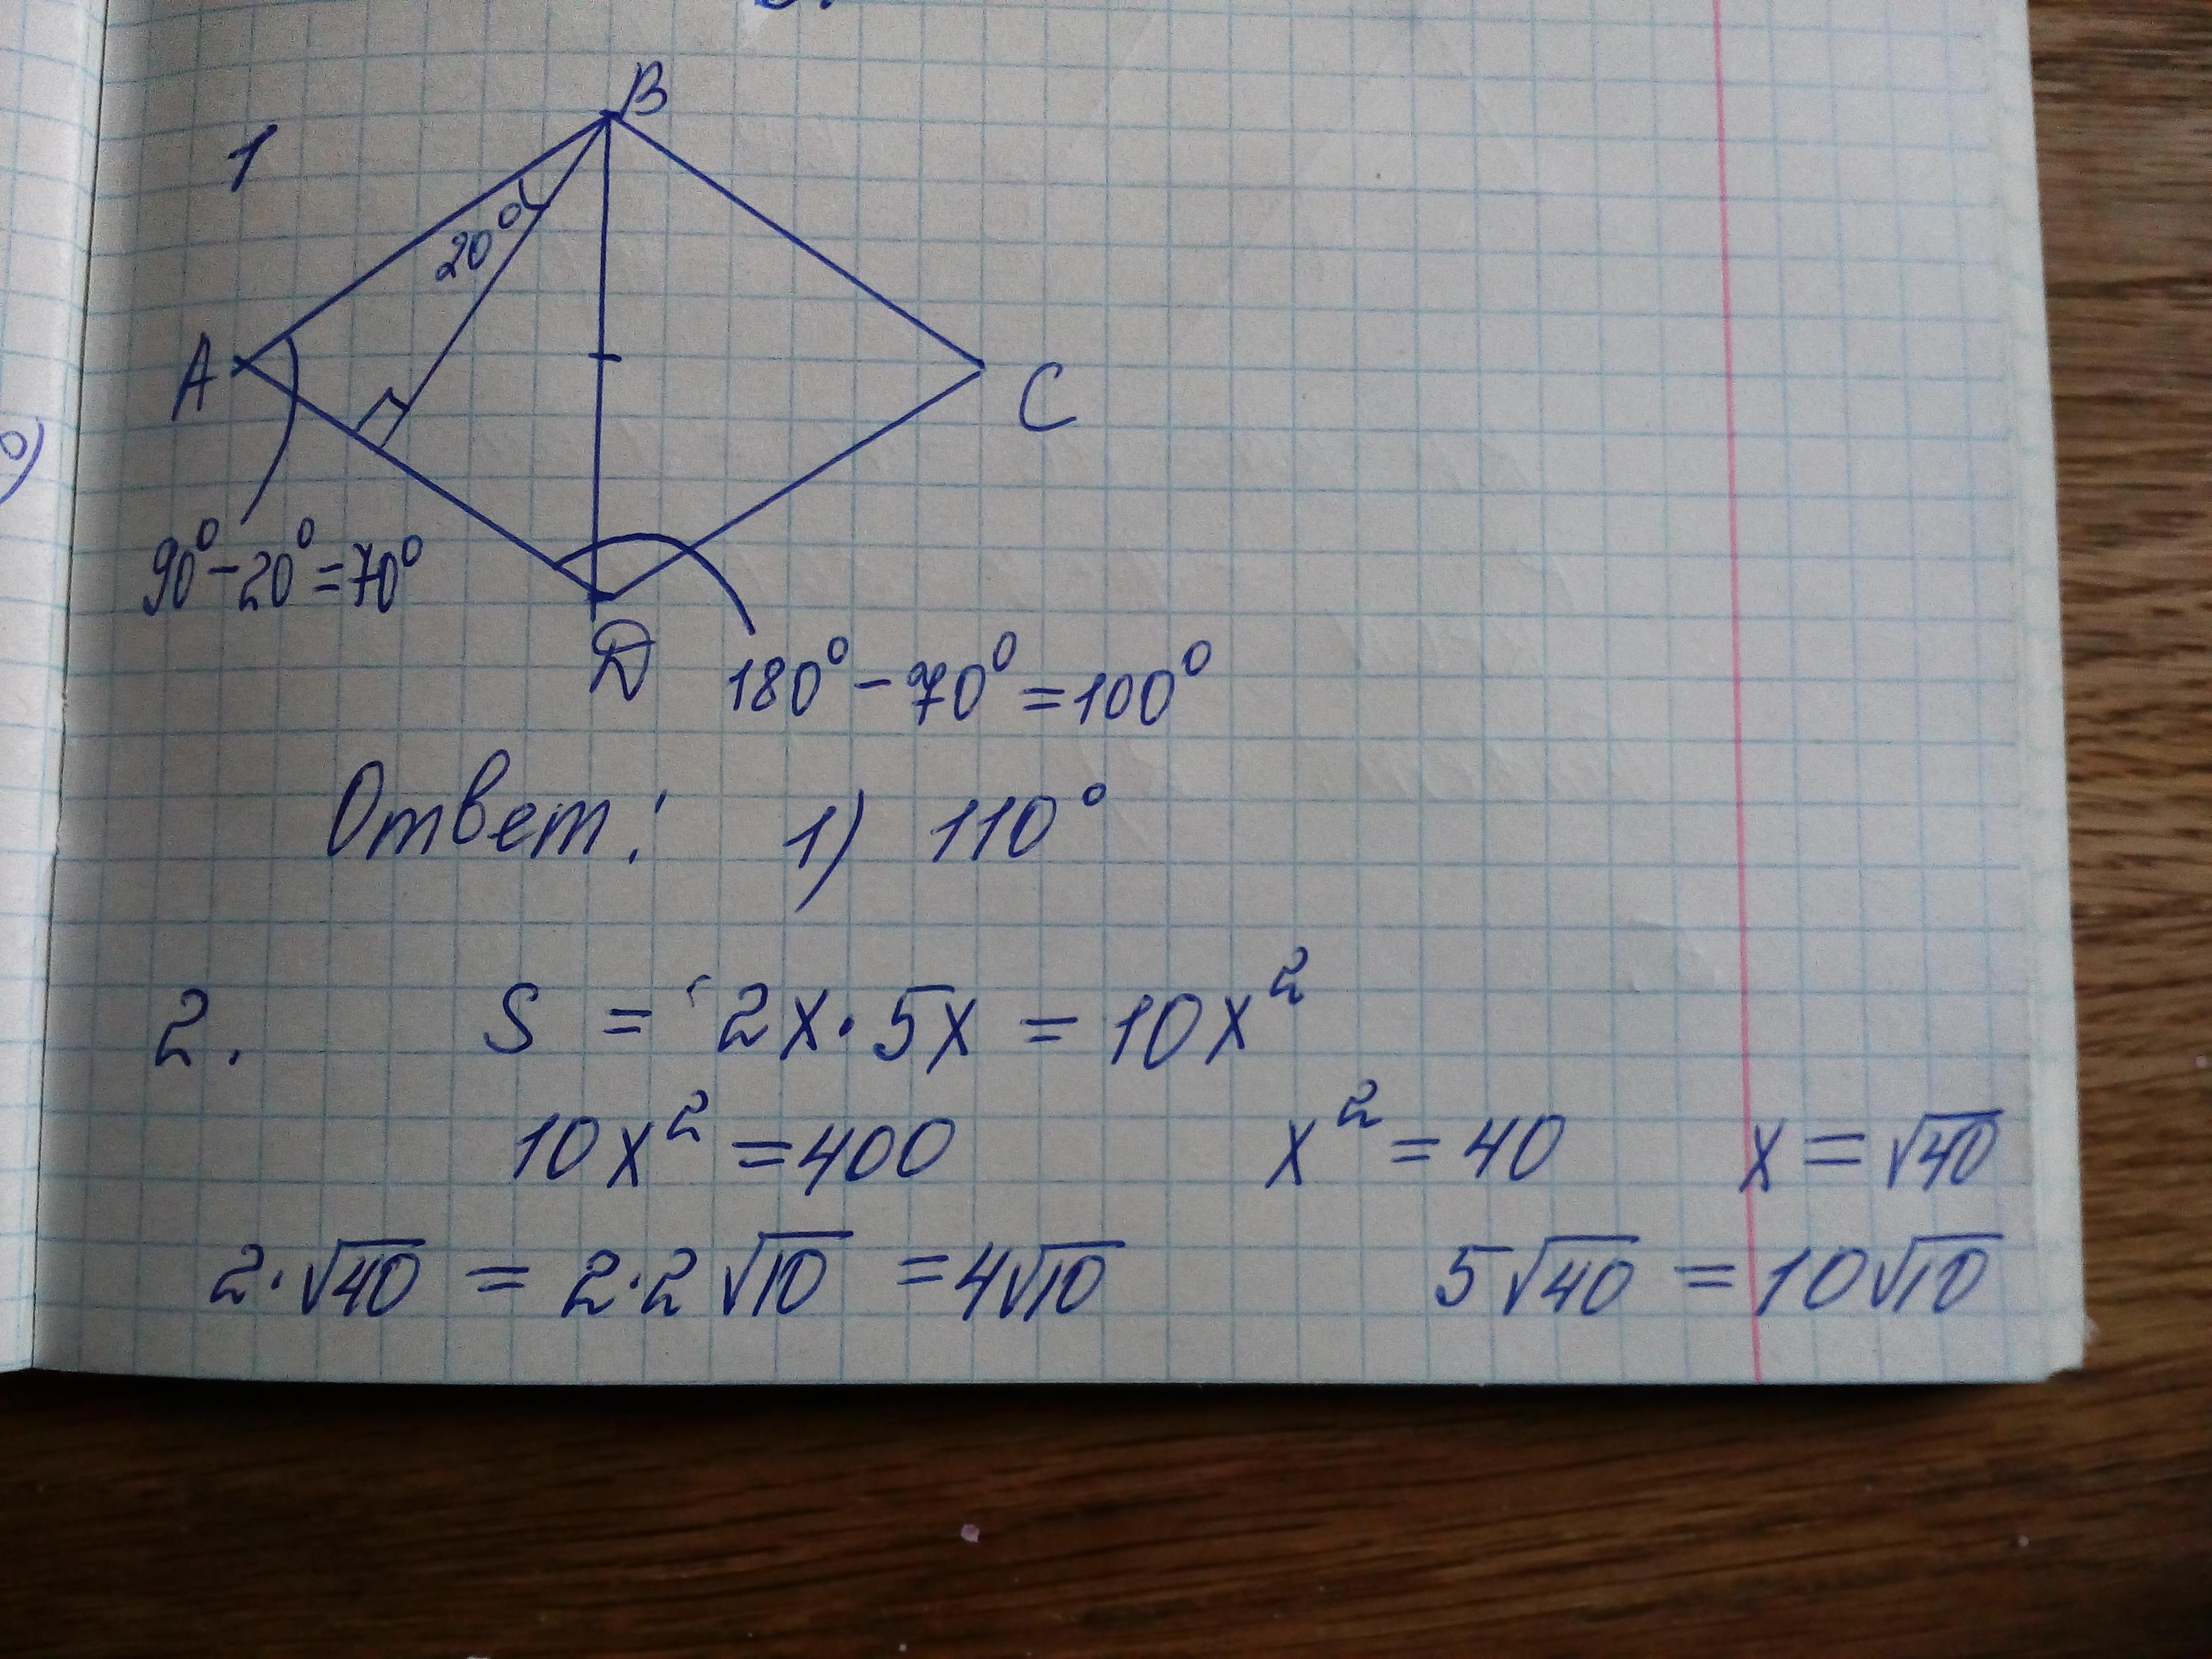 1
B
20°
A
C
90°-20°=70°
D
180°-70°=100°
Ответ: 1) 110°
2. S = 2x·5x = 10x²
10x²=400 x²=40 x=√40
2·√40 = 2·2√10 =4√10 5√40 =10√10